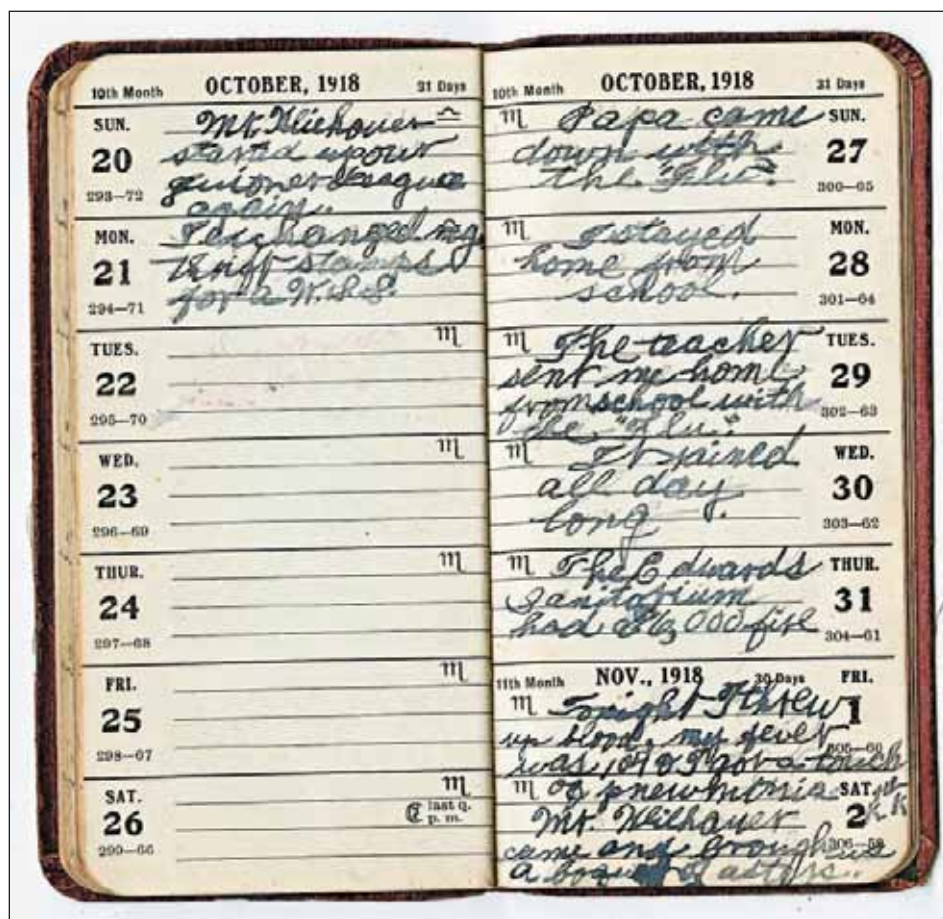 10th Month OCTOBER, 1918 31 Days
SUN.
20
293—72
Mr.
started up our
League
again.
MON.
21
294—71
I exchanged my
thrift stamps
for a W.S.S.
TUES.
22
295—70
WED.
23
296—69
THUR.
24
297—68
FRI.
25
298—67
SAT.
26
299—66
last q.
p. m.
10th Month OCTOBER, 1918 31 Days
SUN.
27
300—65
Papa came
down with
the "Flu".
MON.
28
301—64
I stayed
home from
school.
TUES.
29
302—63
The teacher
sent me home
from school with
the "Flu".
WED.
30
303—62
It rained
all day
long.
THUR.
31
304—61
The Edwards
Sanitorium
had a $6,000 fire
11th Month NOV., 1918 30 Days
FRI.
1
305—60
Tonight I threw
up blood, my fever
was 104 & I a touch
of pneumonia
SAT.
2
306—59
Mr.
came and brought us
a boquet of asters.